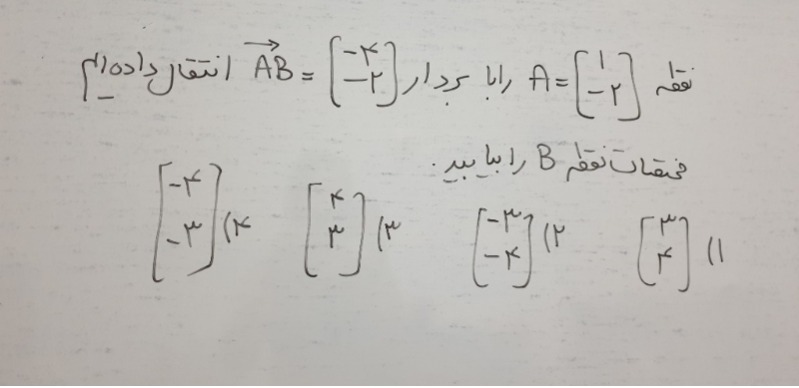 نقطه A = [۱ -۲] را با بردار AB = [-۴ -۲] انتقال داده‌ایم
مختصات نقطه B را بیابید.
۱) [۳ ۴] ۲) [-۳ -۴] ۳) [۴ ۳] ۴) [-۴ -۳]